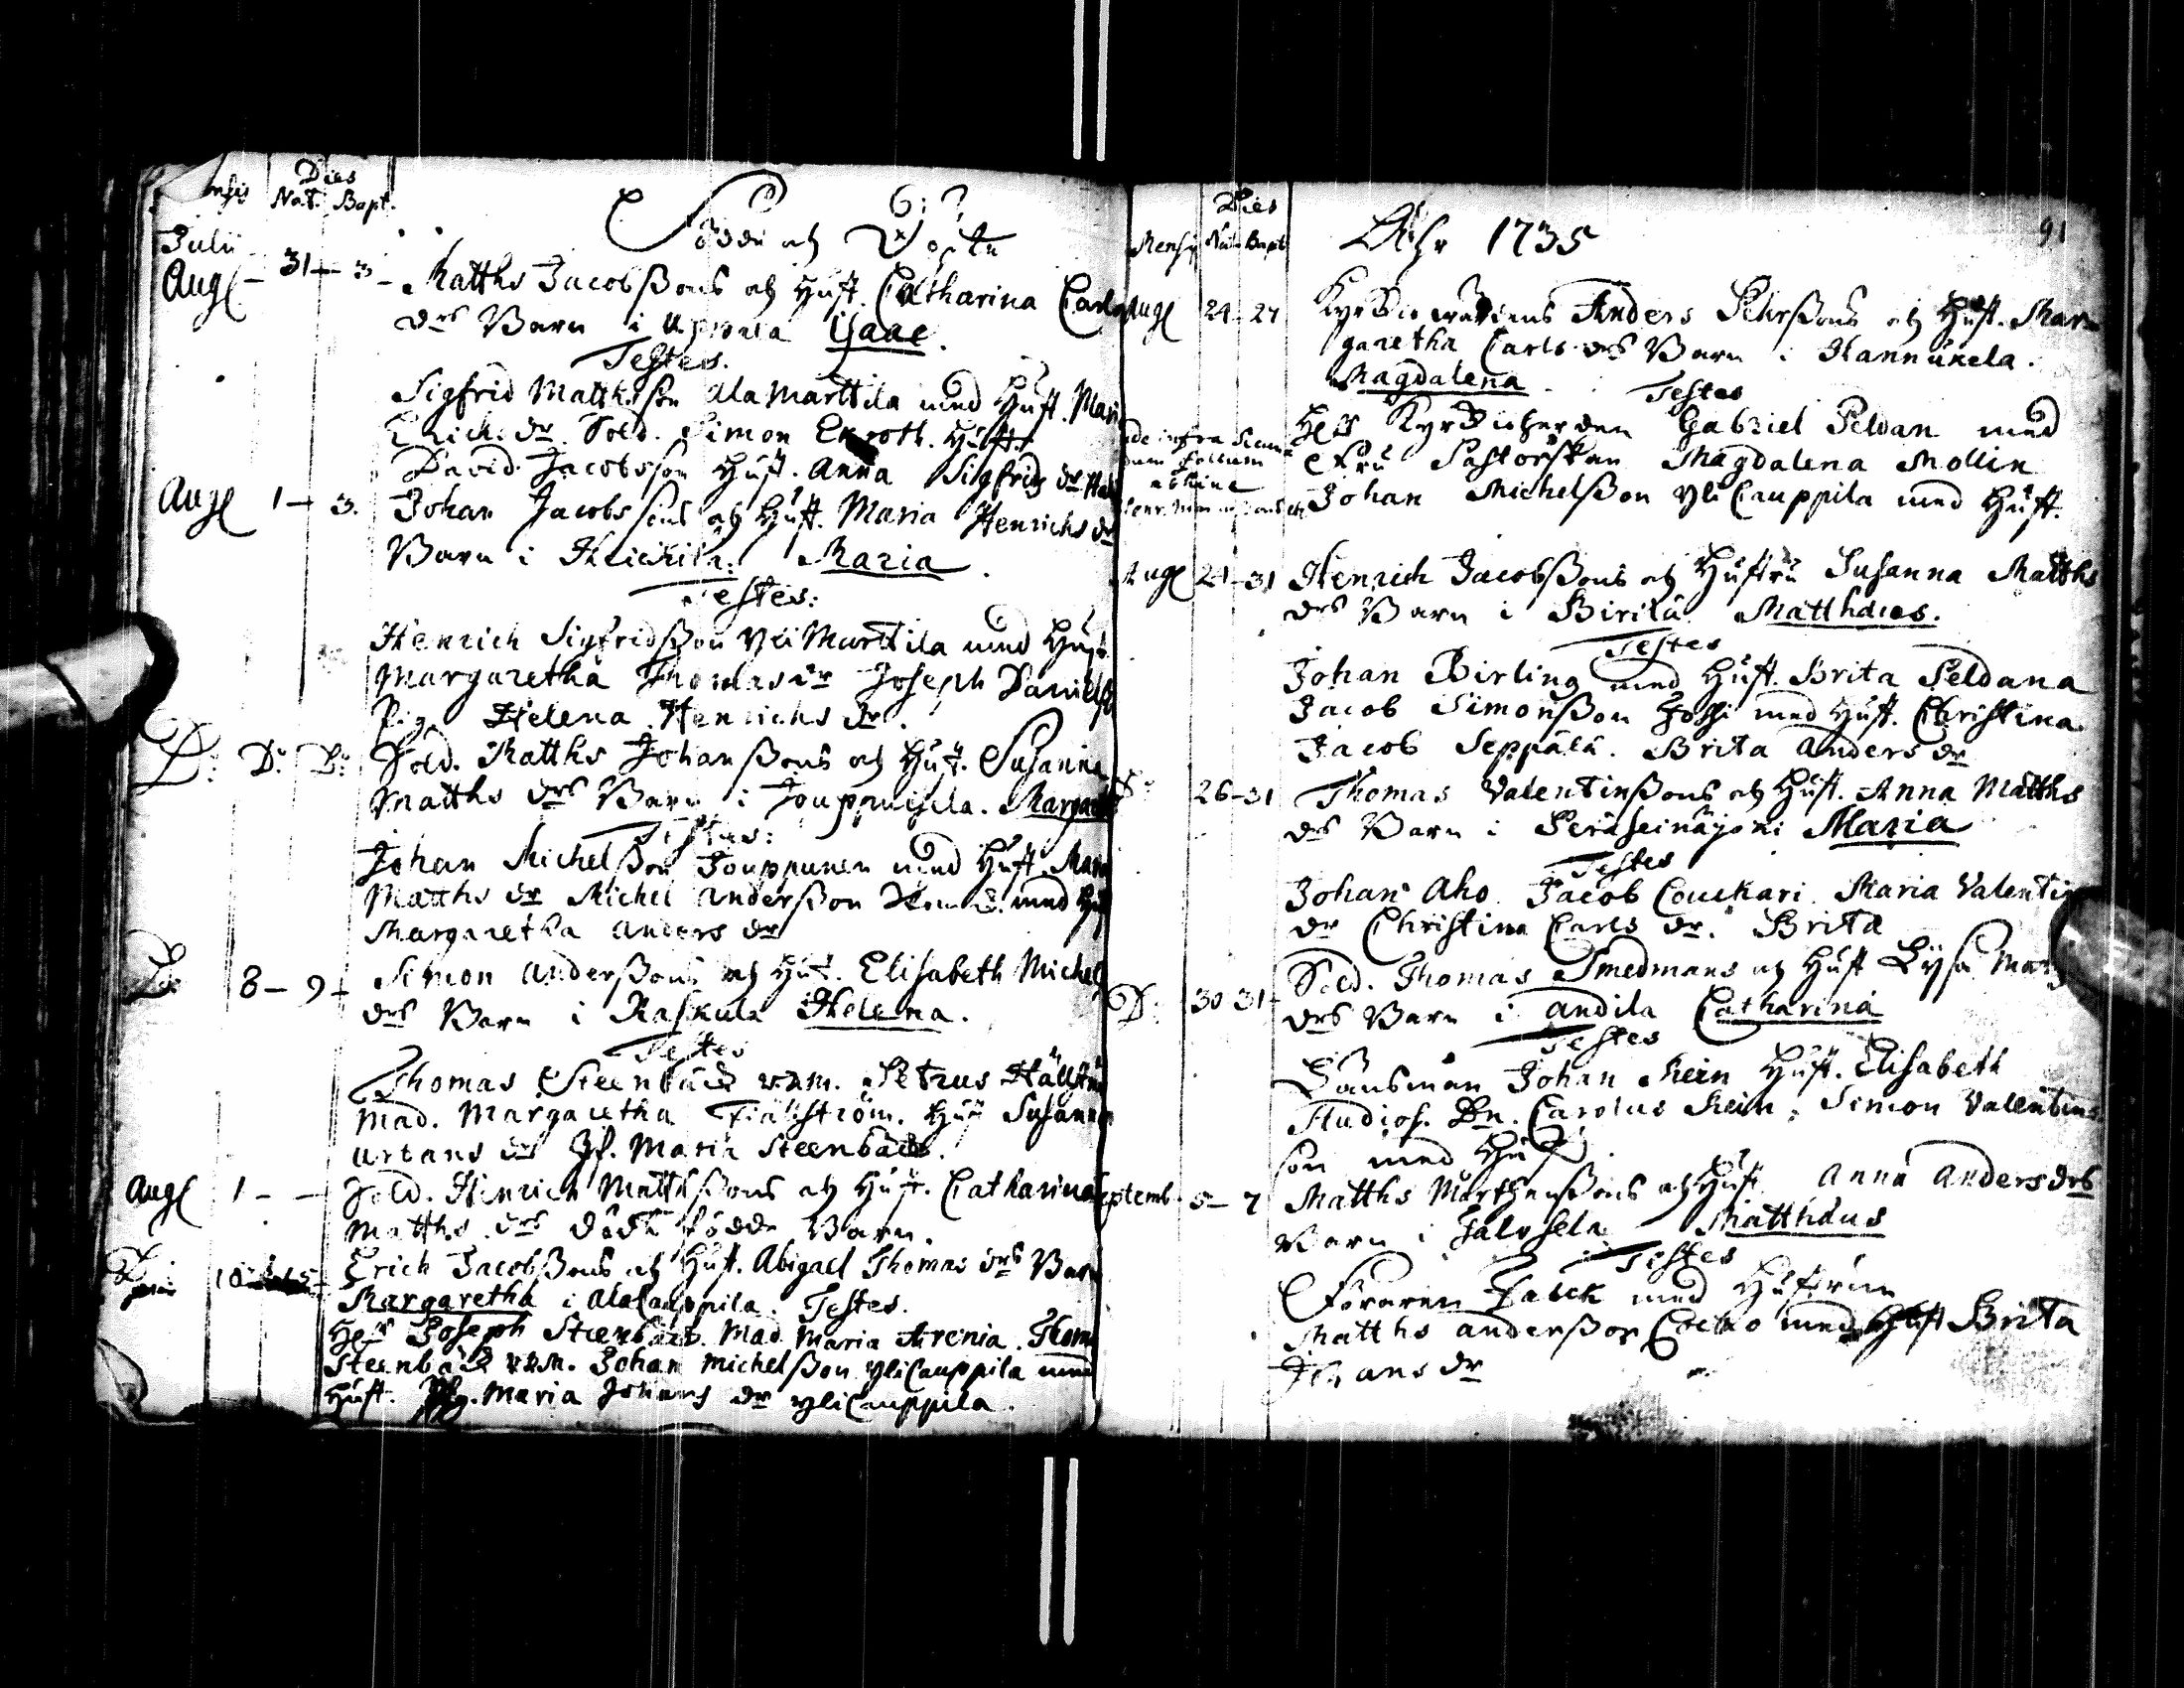 Dies
Nat. Bapt.
Födde och Döpte
Julii
Aug 31 - 3 - Matths Jacobßons och Hust. Catharina Carls
drs Barn i Uppala Isaac.
Testes.
Sigfrid Matthsson Ala Marttila med Hust. Mari
Erich. dr. Sold. Simon Hust.
David Jacobsson Hust. Anna Sigfrids dr
Aug 1 - 3. Johan Jacobssons och Hust. Maria Henrichs dr
Barn i Heickilä. Maria.
Testes:
Henrich Sigfridßon Yli Marttila med Hust.
Margaretha Thomas dr Joseph Daniels
Pig. Helena Henrichs dr.
D: D: D: Sold. Matths Johanßons och Hust. Susanna
Matths drs Barn i Margar
Testes:
Johan Michelßon Jouppunen med Hust. Mar
Matths dr Michel Anderßon med Hu
Margaretha Anders dr
8 - 9 - Simon Anderßons och Hust. Elisabeth Michels
drs Barn i Raskula Helena.
Testes
Thomas Steenbäck v.d.m. Petrus Hällstr
Mad. Margaretha Fiällström. Hust Susanna
Urbans dr Jf. Maria Steenbäck.
Aug 1 - - Sold. Henrich Matthsßons och Hust. Catharina
Matths drs dödfödde Barn.
10 Erich Jacobßons och Hust. Abigael Thomas drs Barn
Margaretha i Ala Cauppila. Testes.
Herr Joseph Steenbäck. Mad. Maria Arenia. Thom
Steenbäck v.d.m. Johan Michelßon Yli Cauppila med
Hust. Pig. Maria Johans dr Yli Cauppila.
Dies
Mensis Nat. Bapt. Åhr 1735 91
Aug 24 - 27 Kyrckiowärdens Anders Pehrßons och Hust. Mar
garetha Carls drs Barn i Hannukela.
Magdalena. Testes
Herr Kyrckioherden Gabriel Peldan med
Fru Pastorskan Magdalena Mollin
Johan Michelßon Yli Cauppila med Hust.
Aug 21 - 31 Henrich Jacobßons och Hustru Susanna Matths
drs Barn i Birilä Matthæus.
Testes
Johan Birling med Hust. Brita Peldana
Jacob Simonßon med Hust. Christina
Jacob Seppälä. Brita Anders dr
D: 26 - 31 Thomas Valentinßons och Hust. Anna Matths
drs Barn i Peräseinäjoki Maria
Testes
Johan Aho. Jacob Couckari. Maria Valentin
dr Christina Carls dr. Brita
D: 30 31 - Sold. Thomas Smedmans och Hust Lysa Matths
drs Barn i Andila Catharina
Testes
Länsman Johan Mein Hust. Elisabeth
Studios. Dn. Carolus Mein, Simon Valentins
son med Hust
Septemb. 5 - 7 Matths Morthenßons och Hust Anna Anders drs
Barn i Jalvsela Matthæus
Testes
Föraren Falck med Hustrun
Matths Anderßon med Hust Brita
Johans dr